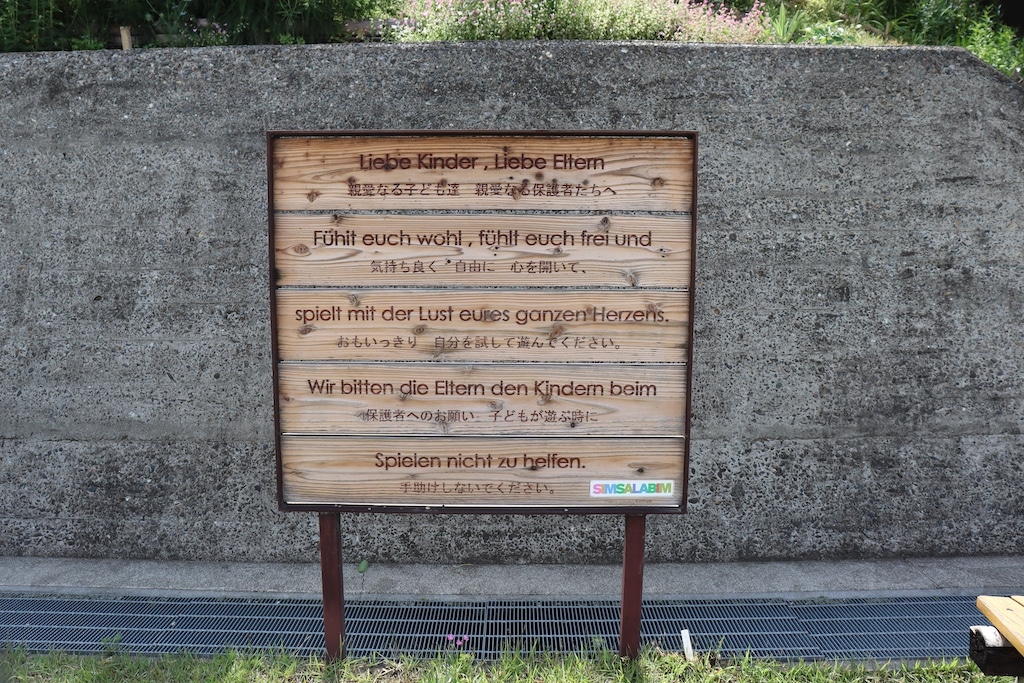 Liebe Kinder , Liebe Eltern
親愛なる子ども達　親愛なる保護者たちへ
Fühlt euch wohl , fühlt euch frei und
気持ち良く　自由に　心を開いて、
spielt mit der Lust eures ganzen Herzens.
おもいっきり　自分を試して遊んでください。
Wir bitten die Eltern den Kindern beim
保護者へのお願い　子どもが遊ぶ時に
Spielen nicht zu helfen.
手助けしないでください。
SIMSALABIM